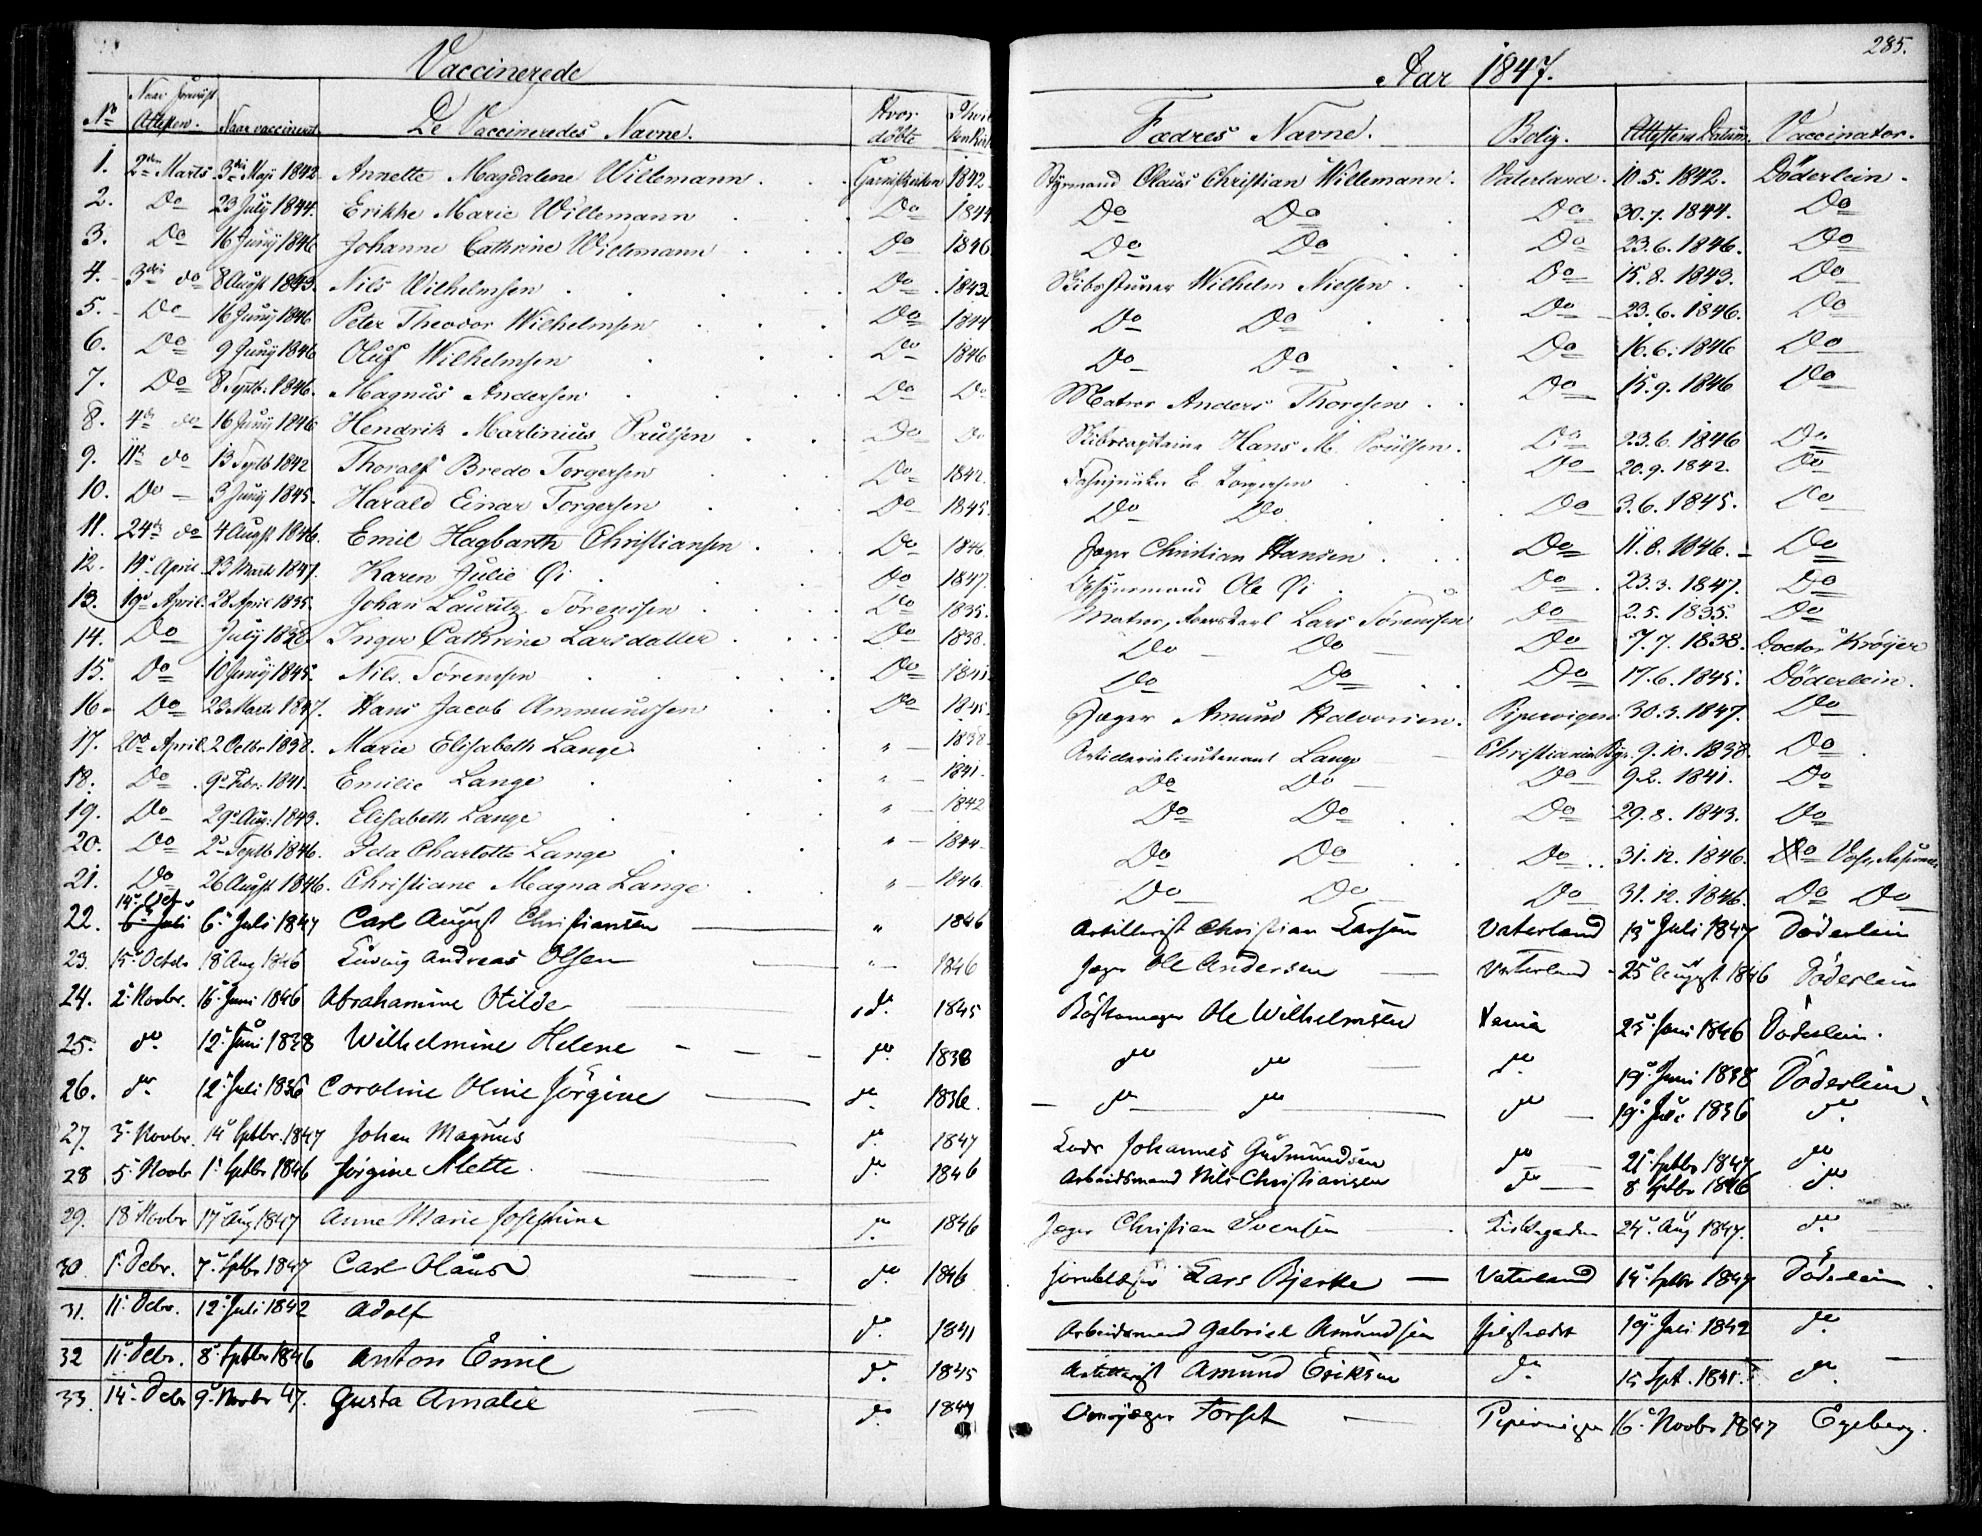 285.
Vaccinerede Aar 1847.
No Attesten. Naar vaccineret De Vaccineredes Navne. Hvor døbte Fædres Navne. Bolig. Attestens Datum. Vaccinator.
1. 2den Marts 3die Maji 1842 Annette Magdalene Willemann 1842 Styrmand Claus Christian Willemann. Vaterland. 10.5.1842. Döderlein.
2. Do 23 July 1844. Erikke Marie Willemann Do 1844 Do Do Do 30.7.1844. Do
3. Do 16 Junÿ 1846 Johanne Cathrine Willemann Do 1846 Do Do Do 23.6.1846. Do
4. 3die do 8 Augst 1843. Nils Wilhelmsen Do 1842 Wilhelm Nielsen Do 15.8.1843. Do
5. Do 16 Junÿ 1846 Peter Theodor Wilhelmsen Do 1844 Do Do Do 23.6.1846. Do
6. Do 9 Junÿ 1846 Oluf Wilhelmsen Do 1846 Do Do Do 16.6.1846 Do
7. Do 8 Septb: 1846. Magnus Andersen Do Do Matros Anders Thoresen Do 15.9.1846 Do
8. 4de do 16 Junÿ 1846 Hendrik Martinius Paulsen Do Do Skibscaptaine Hans M. Poulsen. Do 23.6.1846 Do
9. 11te do 13 Septb 1842 Thoralf Bredo Torgersen Do 1842. E. Torgersen Do 20.9.1842. Do
10. Do 3 Junÿ 1845. Harald Einar Torgersen Do 1845 Do Do Do 3.6.1845. Do
11. 24de do 4 Augst 1846. Emil Hagbarth Christiansen Do 1846 Jæger Christian Hansen Do 11.8.1846. Do
12. 19. April 23 Marts 1847. Karen Julie Øi Do 1847. Ole Øi Do 23.3.1847. Do
13. 19. April. 28 April 1835. Johan Lauritz Sørenssen Do 1835. Matros, Lars Sørenssen Do 2.5.1835. Do
14. Do July 1838. Inger Cathrine Larsdatter Do 1838. Do Do Do 7.7.1838. Doctor Krøÿer
15. Do 10 Junÿ 1845. Nils Sørensen Do 1841 Do Do Do 17.6.1845. Döderlein.
16. Do 23 Marts 1847. Hans Jacob Ammundsen Do 1845. Jæger Amund Halvorsen. Pipervigen 30.3.1847. Do
17. 20. April. 2 Octbr 1838. Marie Elisabeth Lange " 1838 Artillerielieutenant Lange Christiania 9.10.1838 Do
18. Do 9. Febr: 1841. Emilie Lange " 1841. Do Do Do 9.2.1841. Do
19. Do 29. Aug: 1843. Elisabeth Lange " 1842 Do Do Do 29.8.1843. Do
20. Do 2. Septb 1846. Ida Charlotte Lange " 1844. Do Do Do 31.12.1846. Do
21. Do 26 Augst 1846. Christiane Magna Lange " 1846. Do Do Do 31.12.1846. Do Do
14. Oct
22. 6. Juli 6. Juli 1847 Carl August Christiansen " 1846 Artillerist Christian Larsen Vaterland 13. Juli 1847 Döderlein
23. 15. Octob 18 Aug 1846 Ludvig Andreas Olsen " 1846 Jæger Ole Andersen Vaterland 25 August 1846 Döderlein
24. 2. Novbr. 16. Juni 1846 Abrahamine Otilde do. 1845 Ole Wilhelmsen 23. Juni 1846 Döderlein.
25. do. 12. Juni 1838 Wilhelmine Helene do. 1838 do do do. 19. Juni 1838 Döderlein
26. do. 12. Juli 1836 Caroline Oline Jörgine do. 1836. do do do 19. Juli 1836 do.
27. 3. Novbr. 14. Septbr. 1847 Johan Magnus do. 1847 Johannes Gudmundsen do 21. Septbr 1847 do
28 5. Novbr 1. Septbr 1846 Jørgine Alette do. 1846 Arbeidsmand Nils Christiansen do 8 Septbr 1846 do.
29. 18. Novbr 17. Aug 1847 Anne Marie Josephine do. 1846 Jæger Christian Svensen 24. Aug 1847. do.
30. 1. Debr. 7. Septbr 1847 Carl Olaus do. 1846 Lars Bjerke Vaterland 14. Septbr 1847 Döderlein
31. 11. Debr. 12. Juli 1842 Adolf do. 1841 Arbeidsmand Gabriel Amundsen 19. Juli 1842 do.
32 11. Debr. 8. Septbr 1846 Anton Emil do. 1845 Artillerist Amund Eriksen do. 15 Sept. do.
33. 14. Debr 9. Novbr 47. Gusta Amalie do. 1847 Forset Pipervigen 16. Novbr 1847 Egeberg.